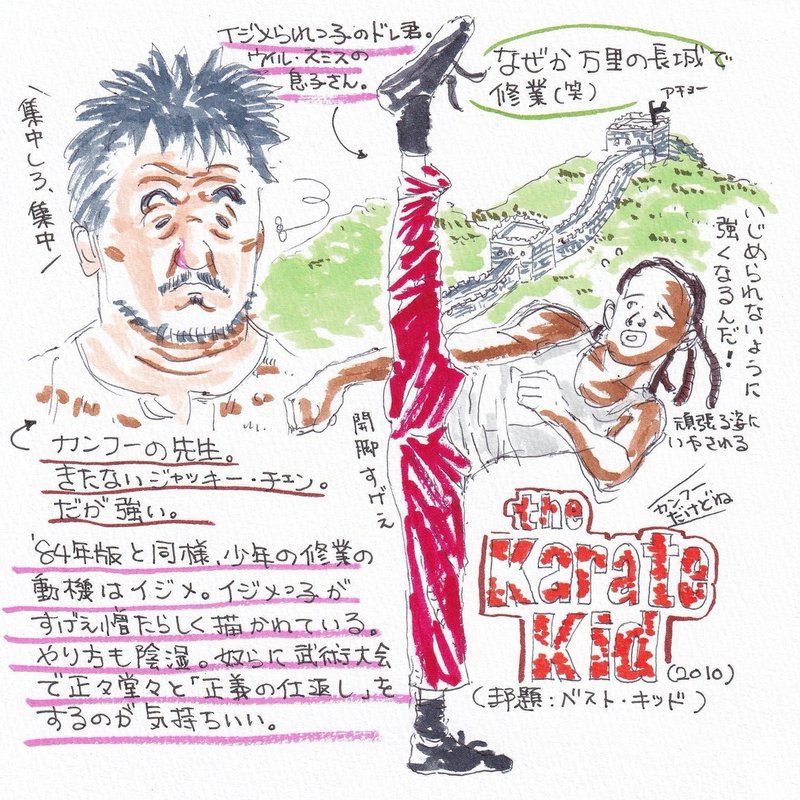 イジメられっ子のドレ君。
ウィル・スミスの
息子さん。
なぜか万里の長城で
修業(笑)
アチョー
集中しろ、集中
いじめられないように
強くなるんだ!
頑張る姿に
いやされる
開脚すげえ
カンフーの先生。
きたないジャッキー・チェン。
だが強い。
カンフー
だけどね
the
Karate
Kid
(2010)
(邦題:ベスト・キッド)
'84年版と同様、少年の修業の
動機はイジメ。イジメっ子が
すげえ憎たらしく描かれている。
やり方も陰湿。奴らに武術大会
で正々堂々と「正義の仕返し」を
するのが気持ちいい。